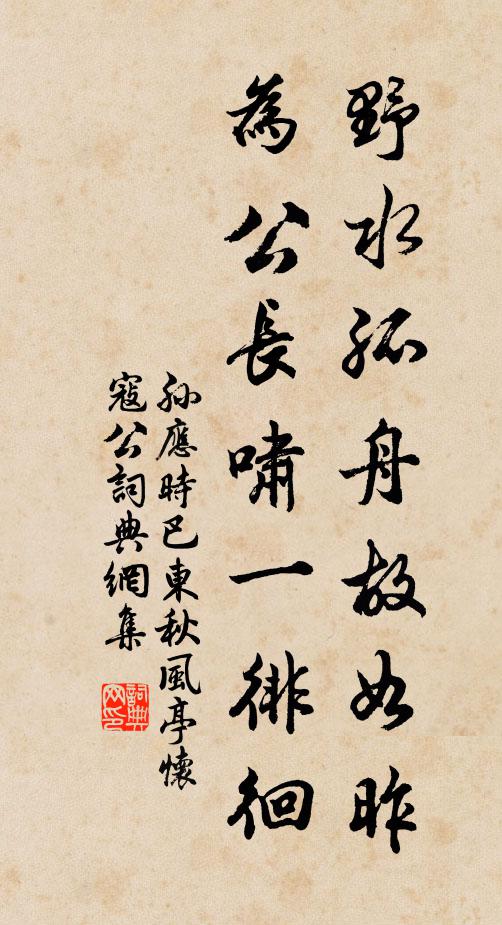 野水孤舟故如昨
為公長嘯一徘徊
孫應時巴東秋風亭懷
寇公詞典網集
詞典网印